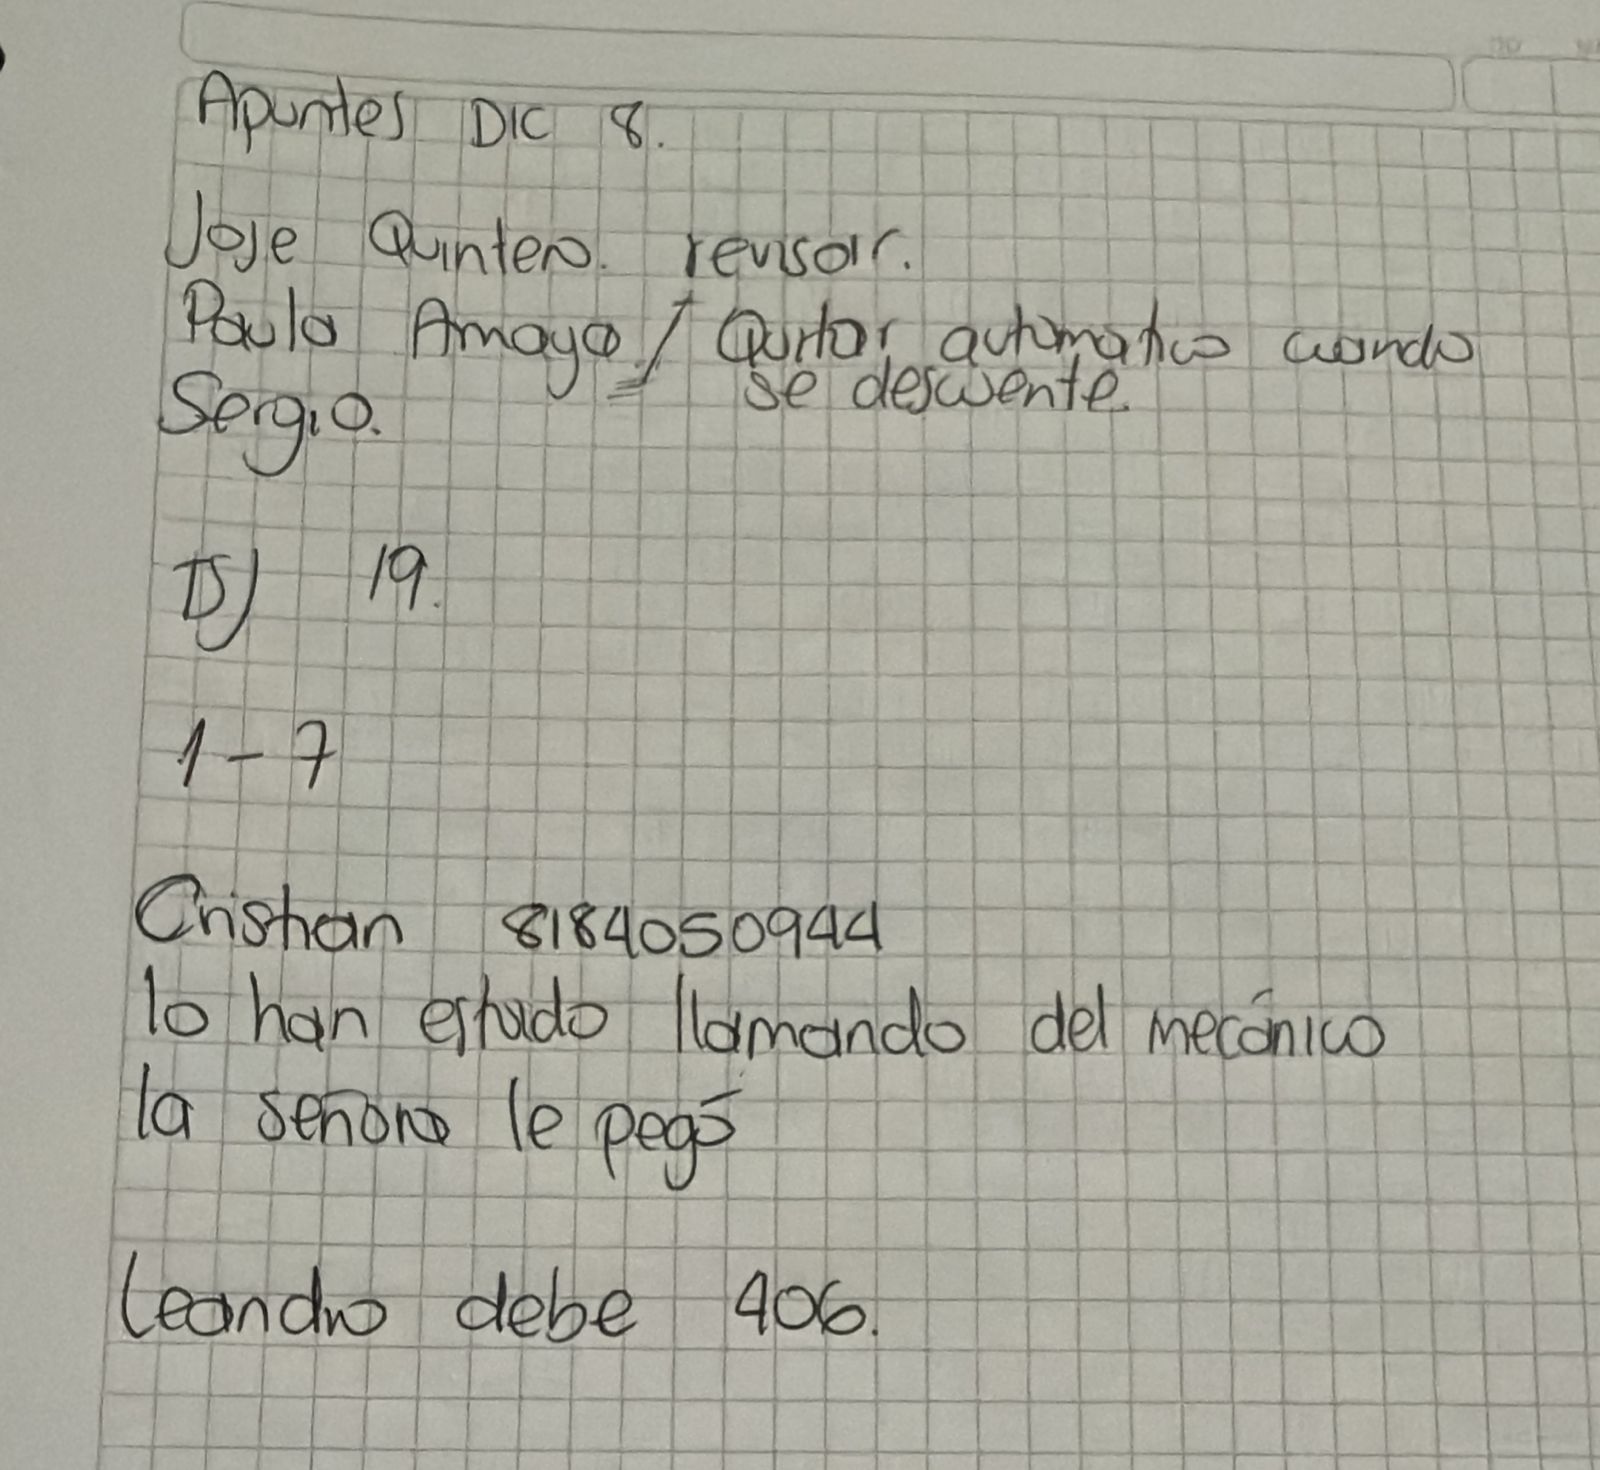 Apuntes DIC 8.
Jose Quintero. revisar.
Paula Amaya / Quitar automatico cuando
se descuente.
Sergio.
19.
1-7
Cristian 8184050944
lo han estado llamando del mecánico
la señora le pegó
Leandro debe 406.